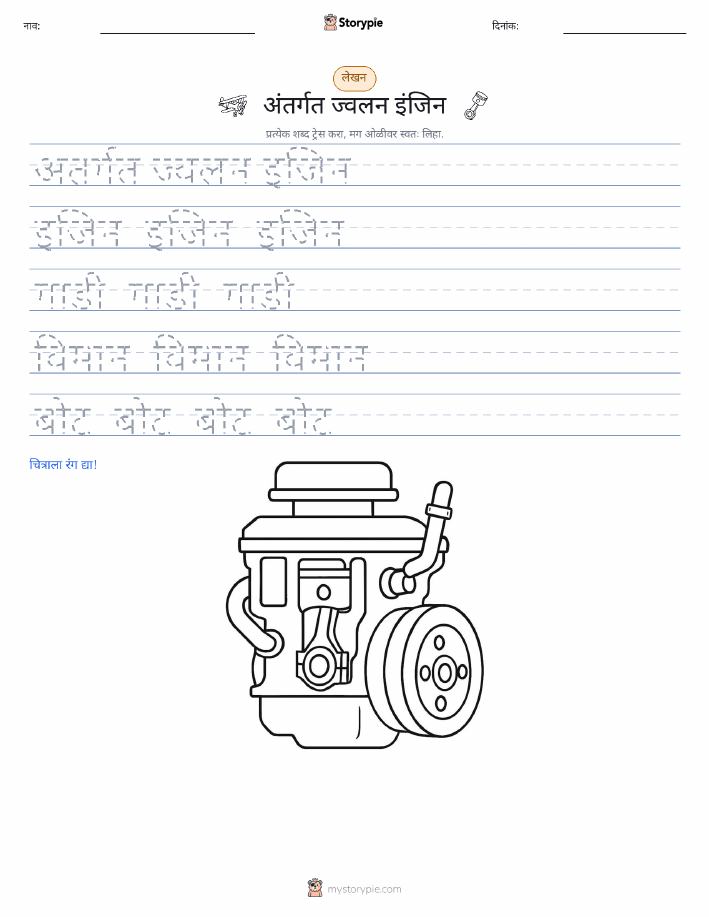 नाव:
Storypie
दिनांक:
लेखन
अंतर्गत ज्वलन इंजिन
प्रत्येक शब्द ट्रेस करा, मग ओळीवर स्वतः लिहा.
अंतर्गत ज्वलन इंजिन
इंजिन इंजिन इंजिन
गाडी गाडी गाडी
विमान विमान विमान
बोट बोट बोट बोट
चित्राला रंग द्या!
mystorypie.com